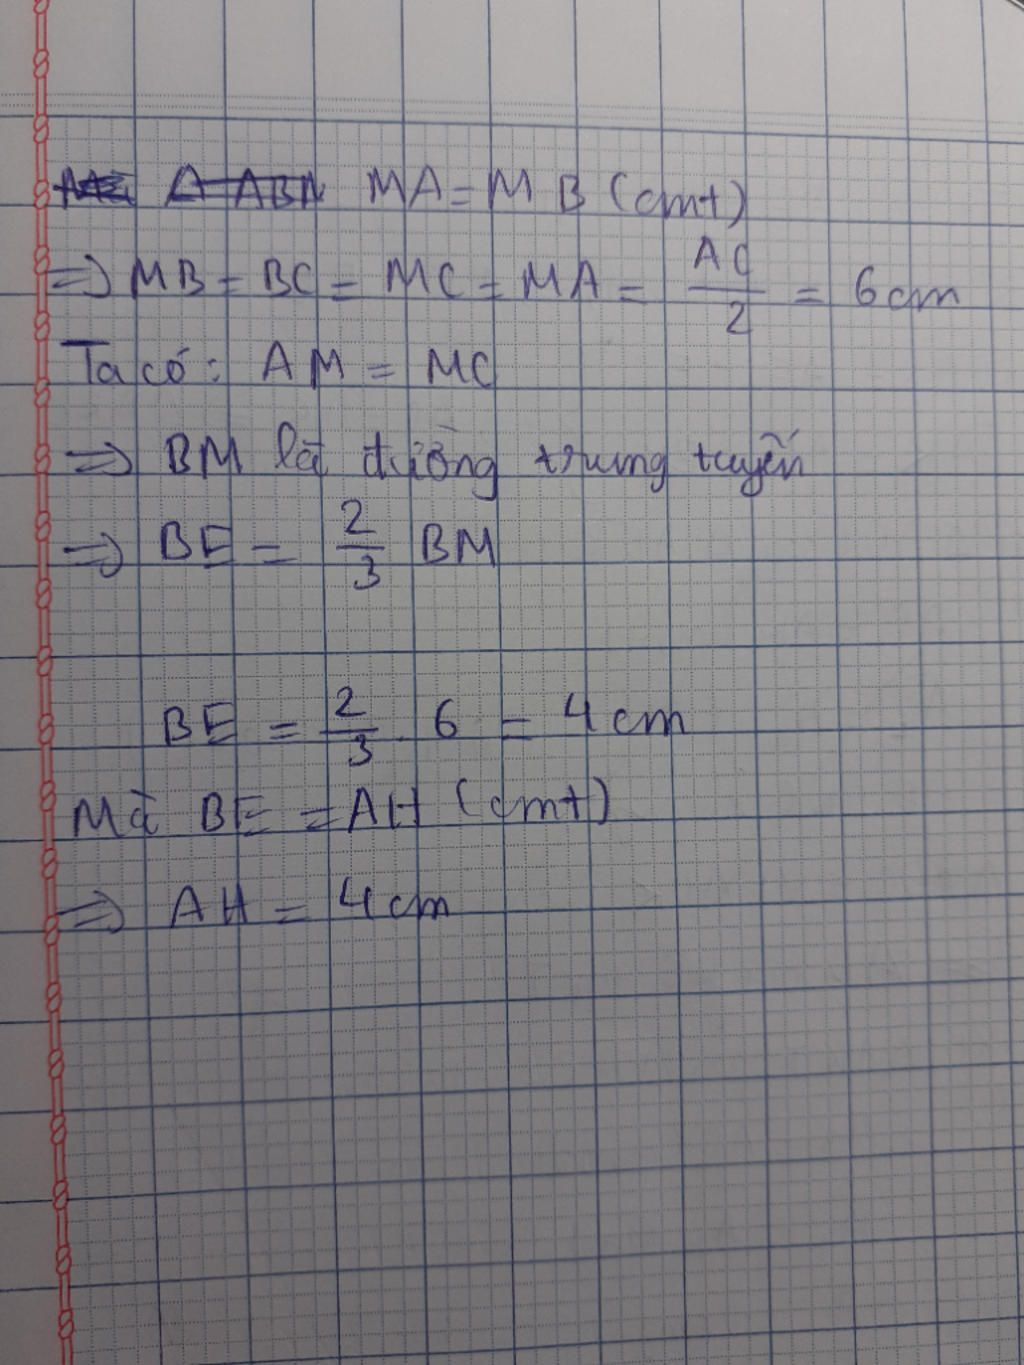 MA = MB (cmt)
=> MB = BC = MC = MA = AC/2 = 6cm
Ta có: AM = MC
=> BM là đường trung tuyến
=> BE = 2/3 BM
BE = 2/3 . 6 = 4cm
Mà BE = AH (cmt)
=> AH = 4cm